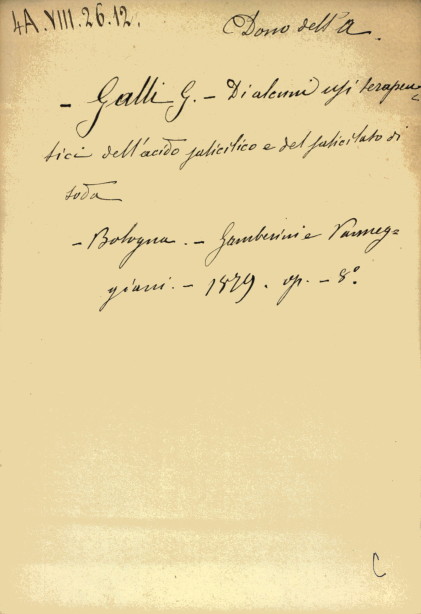 4A.VIII.26.12.
Dono dell'A.
- Galli G. - Di alcuni usi terapeu-
tici dell'acido salicilico e del salicilato di
soda
- Bologna. - Gamberini e Parmeg-
giani. - 1879. op. - 8°.
C